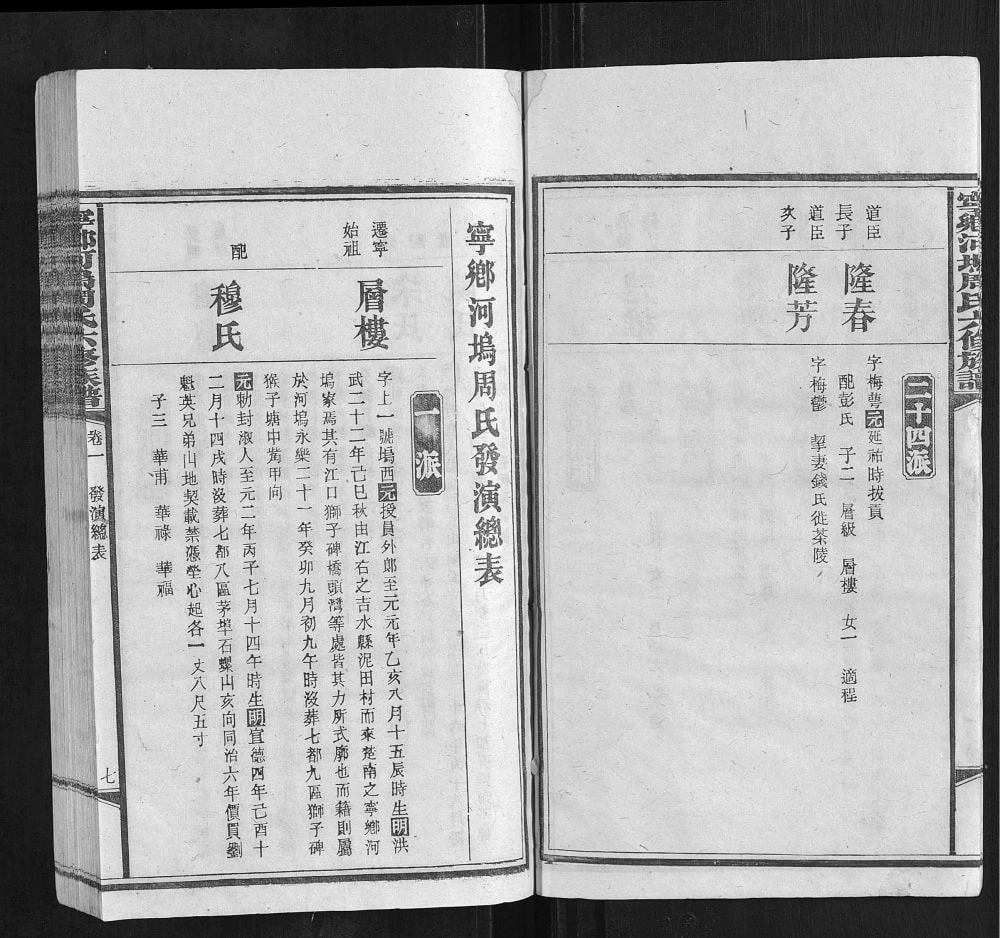 寧鄉河塢周氏六修族譜
二十四派
道臣長子
隆春
字梅蕚元延祐時拔貢
配彭氏 子二 層級 層樓 女一 適程
道臣次子
隆芳
字梅鬱 挈妻錢氏徙茶陵
寧鄉河塢周氏發演總表
一派
遷寧始祖
層樓
字上一號塢西元授員外郎至元元年乙亥八月十五辰時生明洪
武二十二年己巳秋由江右之吉水縣泥田村而來楚南之寧鄉河
塢家焉其有江口獅子碑橋頭灣等處皆其力所式廓也而籍則屬
於河塢永樂二十一年癸卯九月初九午時沒葬七都九區獅子碑
猴子塘中嵩甲向
配
穆氏
元勅封淑人至元二年丙子七月十四午時生明宣德四年己酉十
二月十四戌時沒葬七都八區茅埠石螺山亥向同治六年價買劉
魁英兄弟山地契載禁憑塋心起各一丈八尺五寸
子三 華甫 華祿 華福
寧鄉河塢周氏六修族譜
卷一
發演總表
七